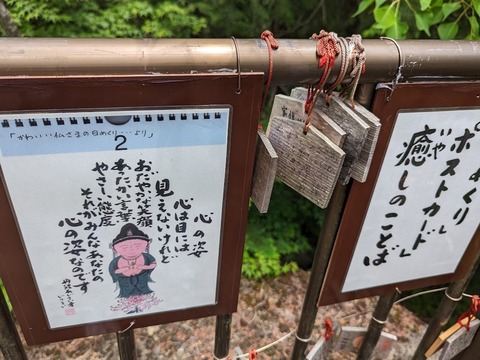 「かわいい仏さまの日めくり…より」
2
心の姿
心は目には
見えないけれど
おだやかな笑顔
あったかい言葉
やさしい態度
それがみんなあなたの
心の姿なのです
めくり」
「ポストカード」
や
癒しのことば